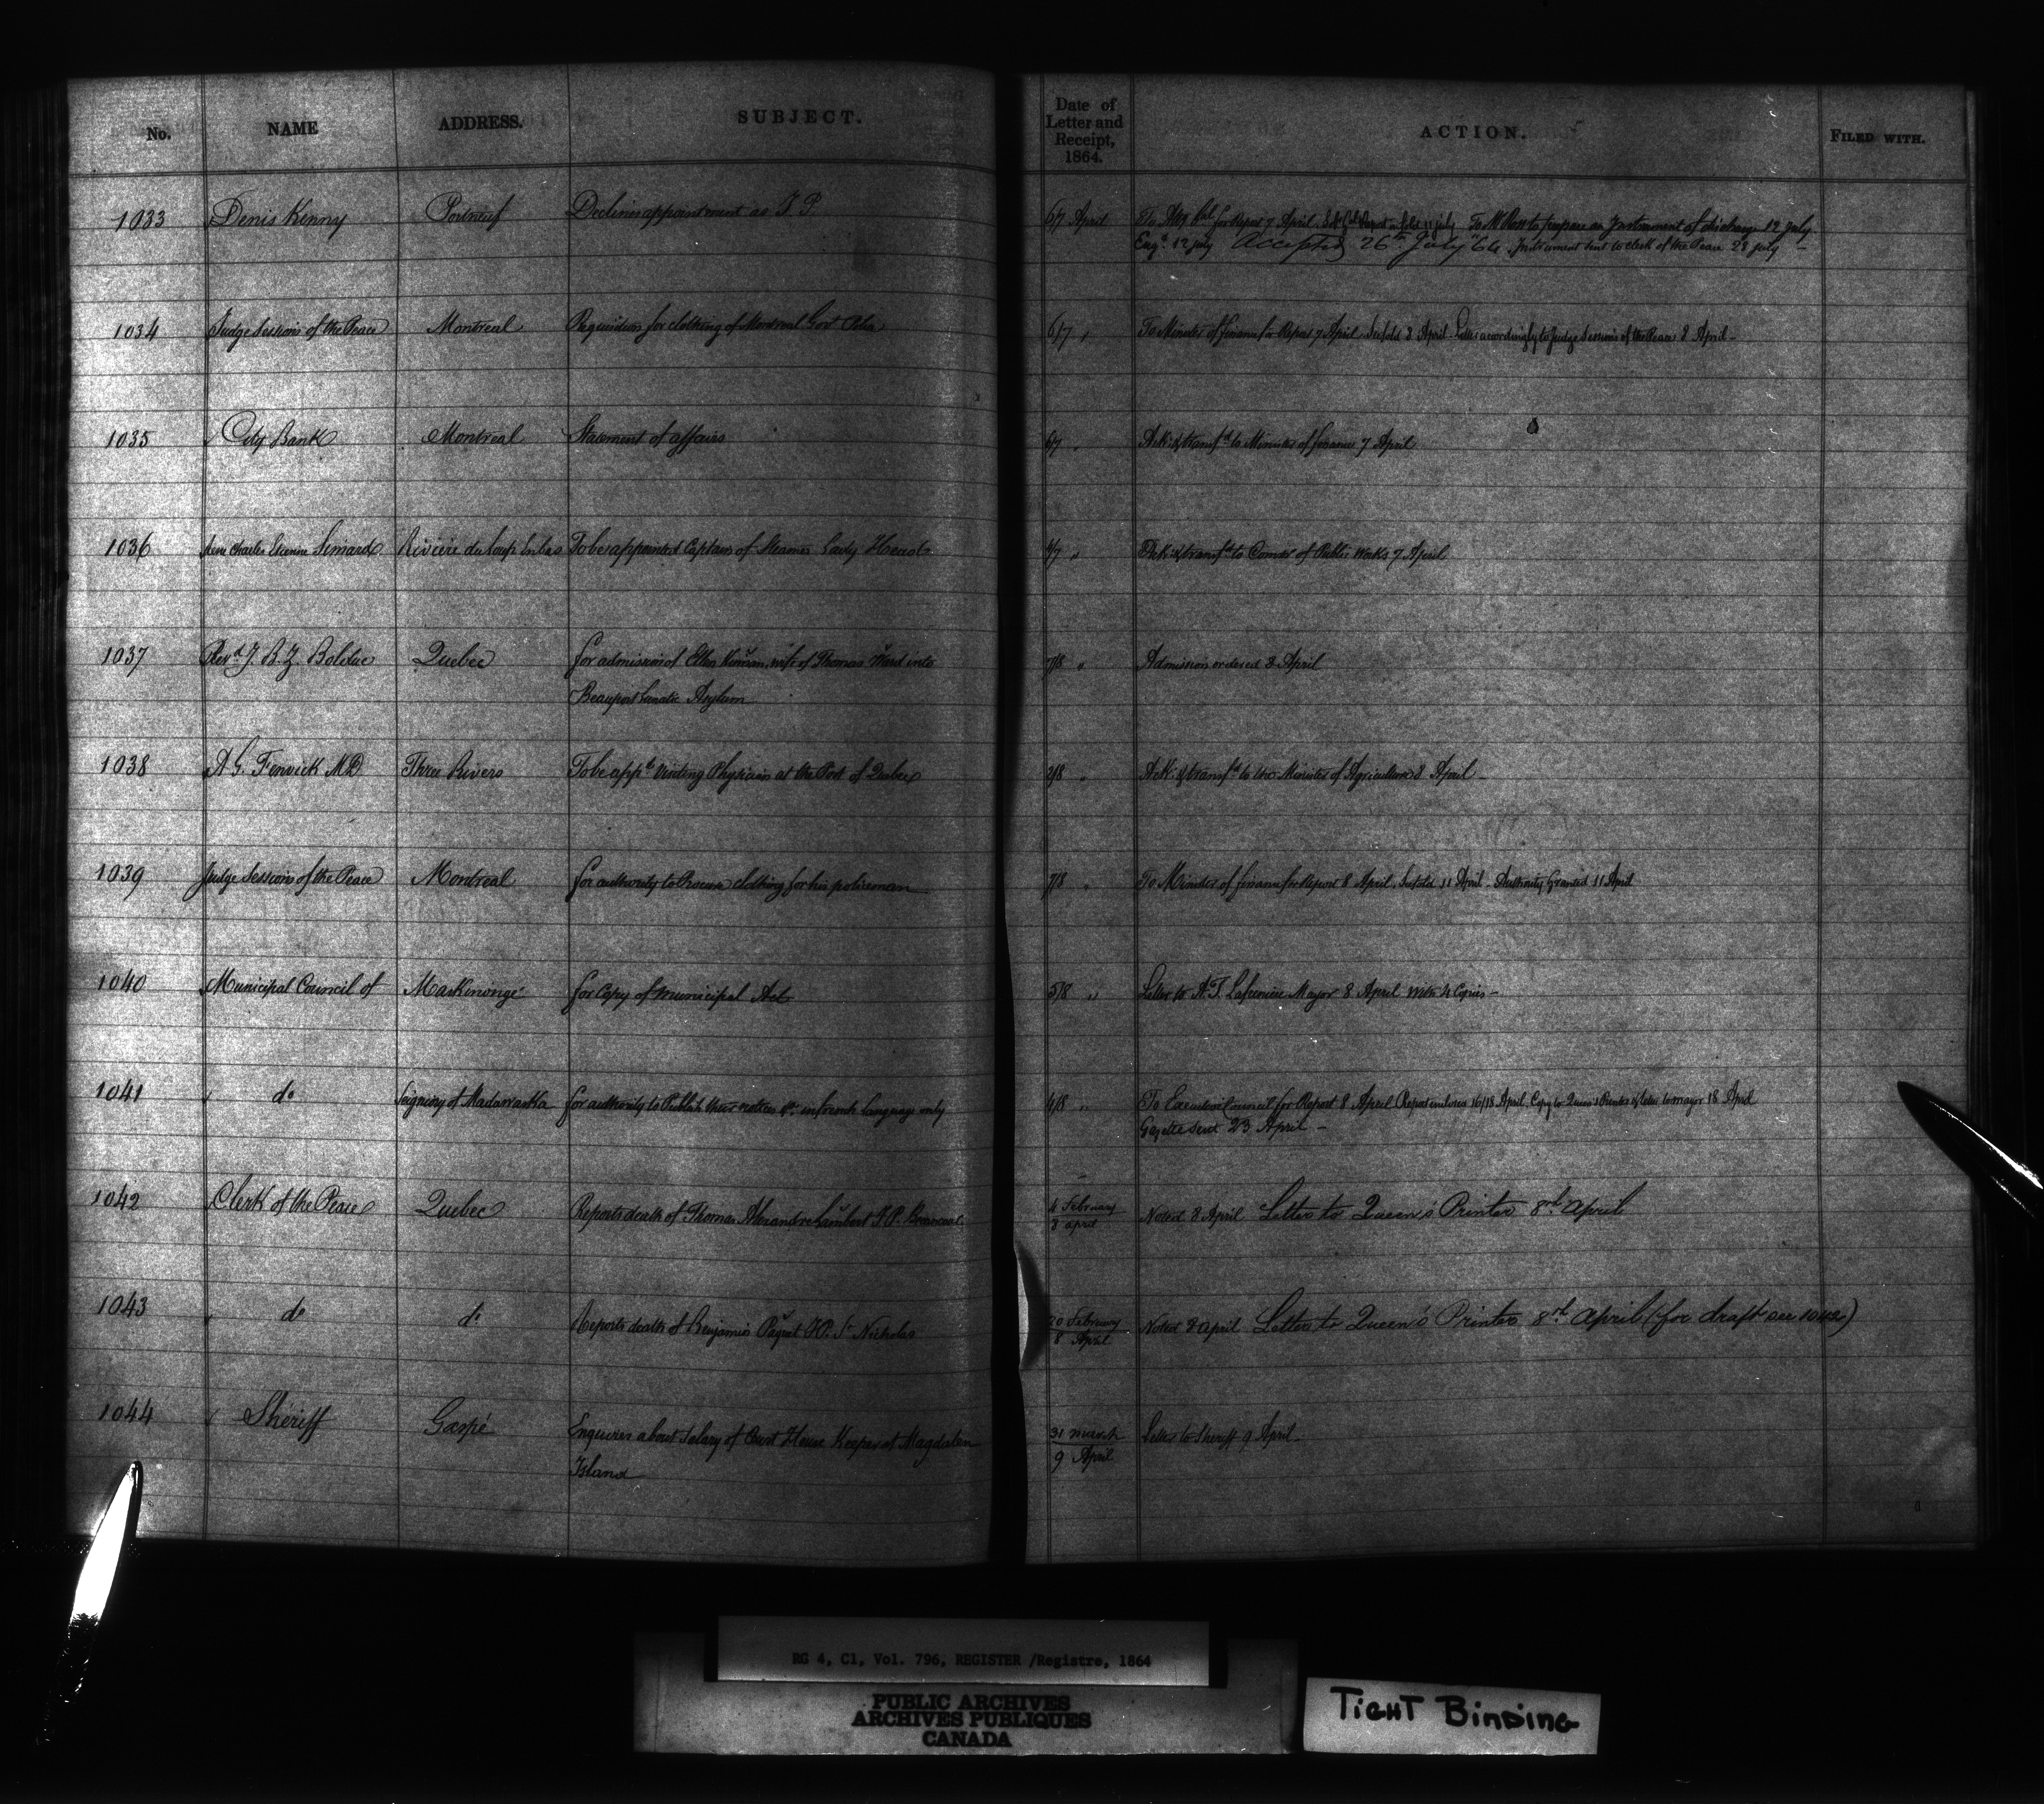 No. NAME ADDRESS. SUBJECT. Date of Letter and Receipt, 1864. ACTION. FILED WITH.
1033 Denis Kenny Portneuf Declines appointment as J P 6/7 April To Atty Gal for Report 7 April To Mr Ross to prepare an Instrument of discharge 12 July
Engd. 12 July Accepted 26th July '64 Instrument sent to Clerk of the Peace 28 July
1034 Judge Sessions of the Peace Montreal Requisition for clothing of Montreal Govt Police 6/7 " To Minister of finance for Report 7 April. 8 April. Letter accordingly to Judge Sessions of the Peace 8 April
1035 City Bank Montreal Statement of affairs 6/7 " Ack: & transfd to Minister of finance 7 April
1036 Charles Etienne Simard Rivière du Loup en bas To be appointed Captain of Steamer Lady Head 4/7 " Ack: & transfd to Commr of Public Works 7 April
1037 Revd J. B. Z. Bolduc Quebec for admission of Ellen Kiernan, wife of Thomas Ward into 7/8 " Admission ordered 8 April
Beauport Lunatic Asylum
1038 A. G. Fenwick MD Three Rivers To be appd Visiting Physician at the Port of Quebec 2/8 " Ack: & transfd to Minister of Agriculture 8 April
1039 Judge Sessions of the Peace Montreal for authority to Procure clothing for his policeman 7/8 " To Minister of finance for Report 8 April. 11 April. Authority Granted 11 April
1040 Municipal Council of Maskinongé for Copy of Municipal Act 5/8 " Letter to A. T. Lafrenière Mayor 8 April With 4 Copies
1041 do Seigniory of Madawaska for authority to Publish their notices &c. in french language only 4/8 " To Executive Council for Report 8 April Report 16/18 April. Copy to Queen's Printer & letter to mayor 18 April
Gazette Sent 23 April
1042 Clerk of the Peace Quebec Reports death of Thomas Alexandre Lambert J.P. 4 February Noted 8 April Letter to Queen's Printer 8th April
8 april
1043 do do Reports death of Benjamin Paquet J.P. St Nicholas 20 February Noted 8 april Letter to Queen's Printer 8th April (for draft see 1042)
8 April
1044 Sheriff Gaspé Enquires about Salary of Court House Keeper at Magdalen 31 march Letter to Sheriff 9 April
Island 9 April
RG 4, C1, Vol. 796, REGISTER /Registre, 1864
PUBLIC ARCHIVES
ARCHIVES PUBLIQUES
CANADA
TIGHT BINDING